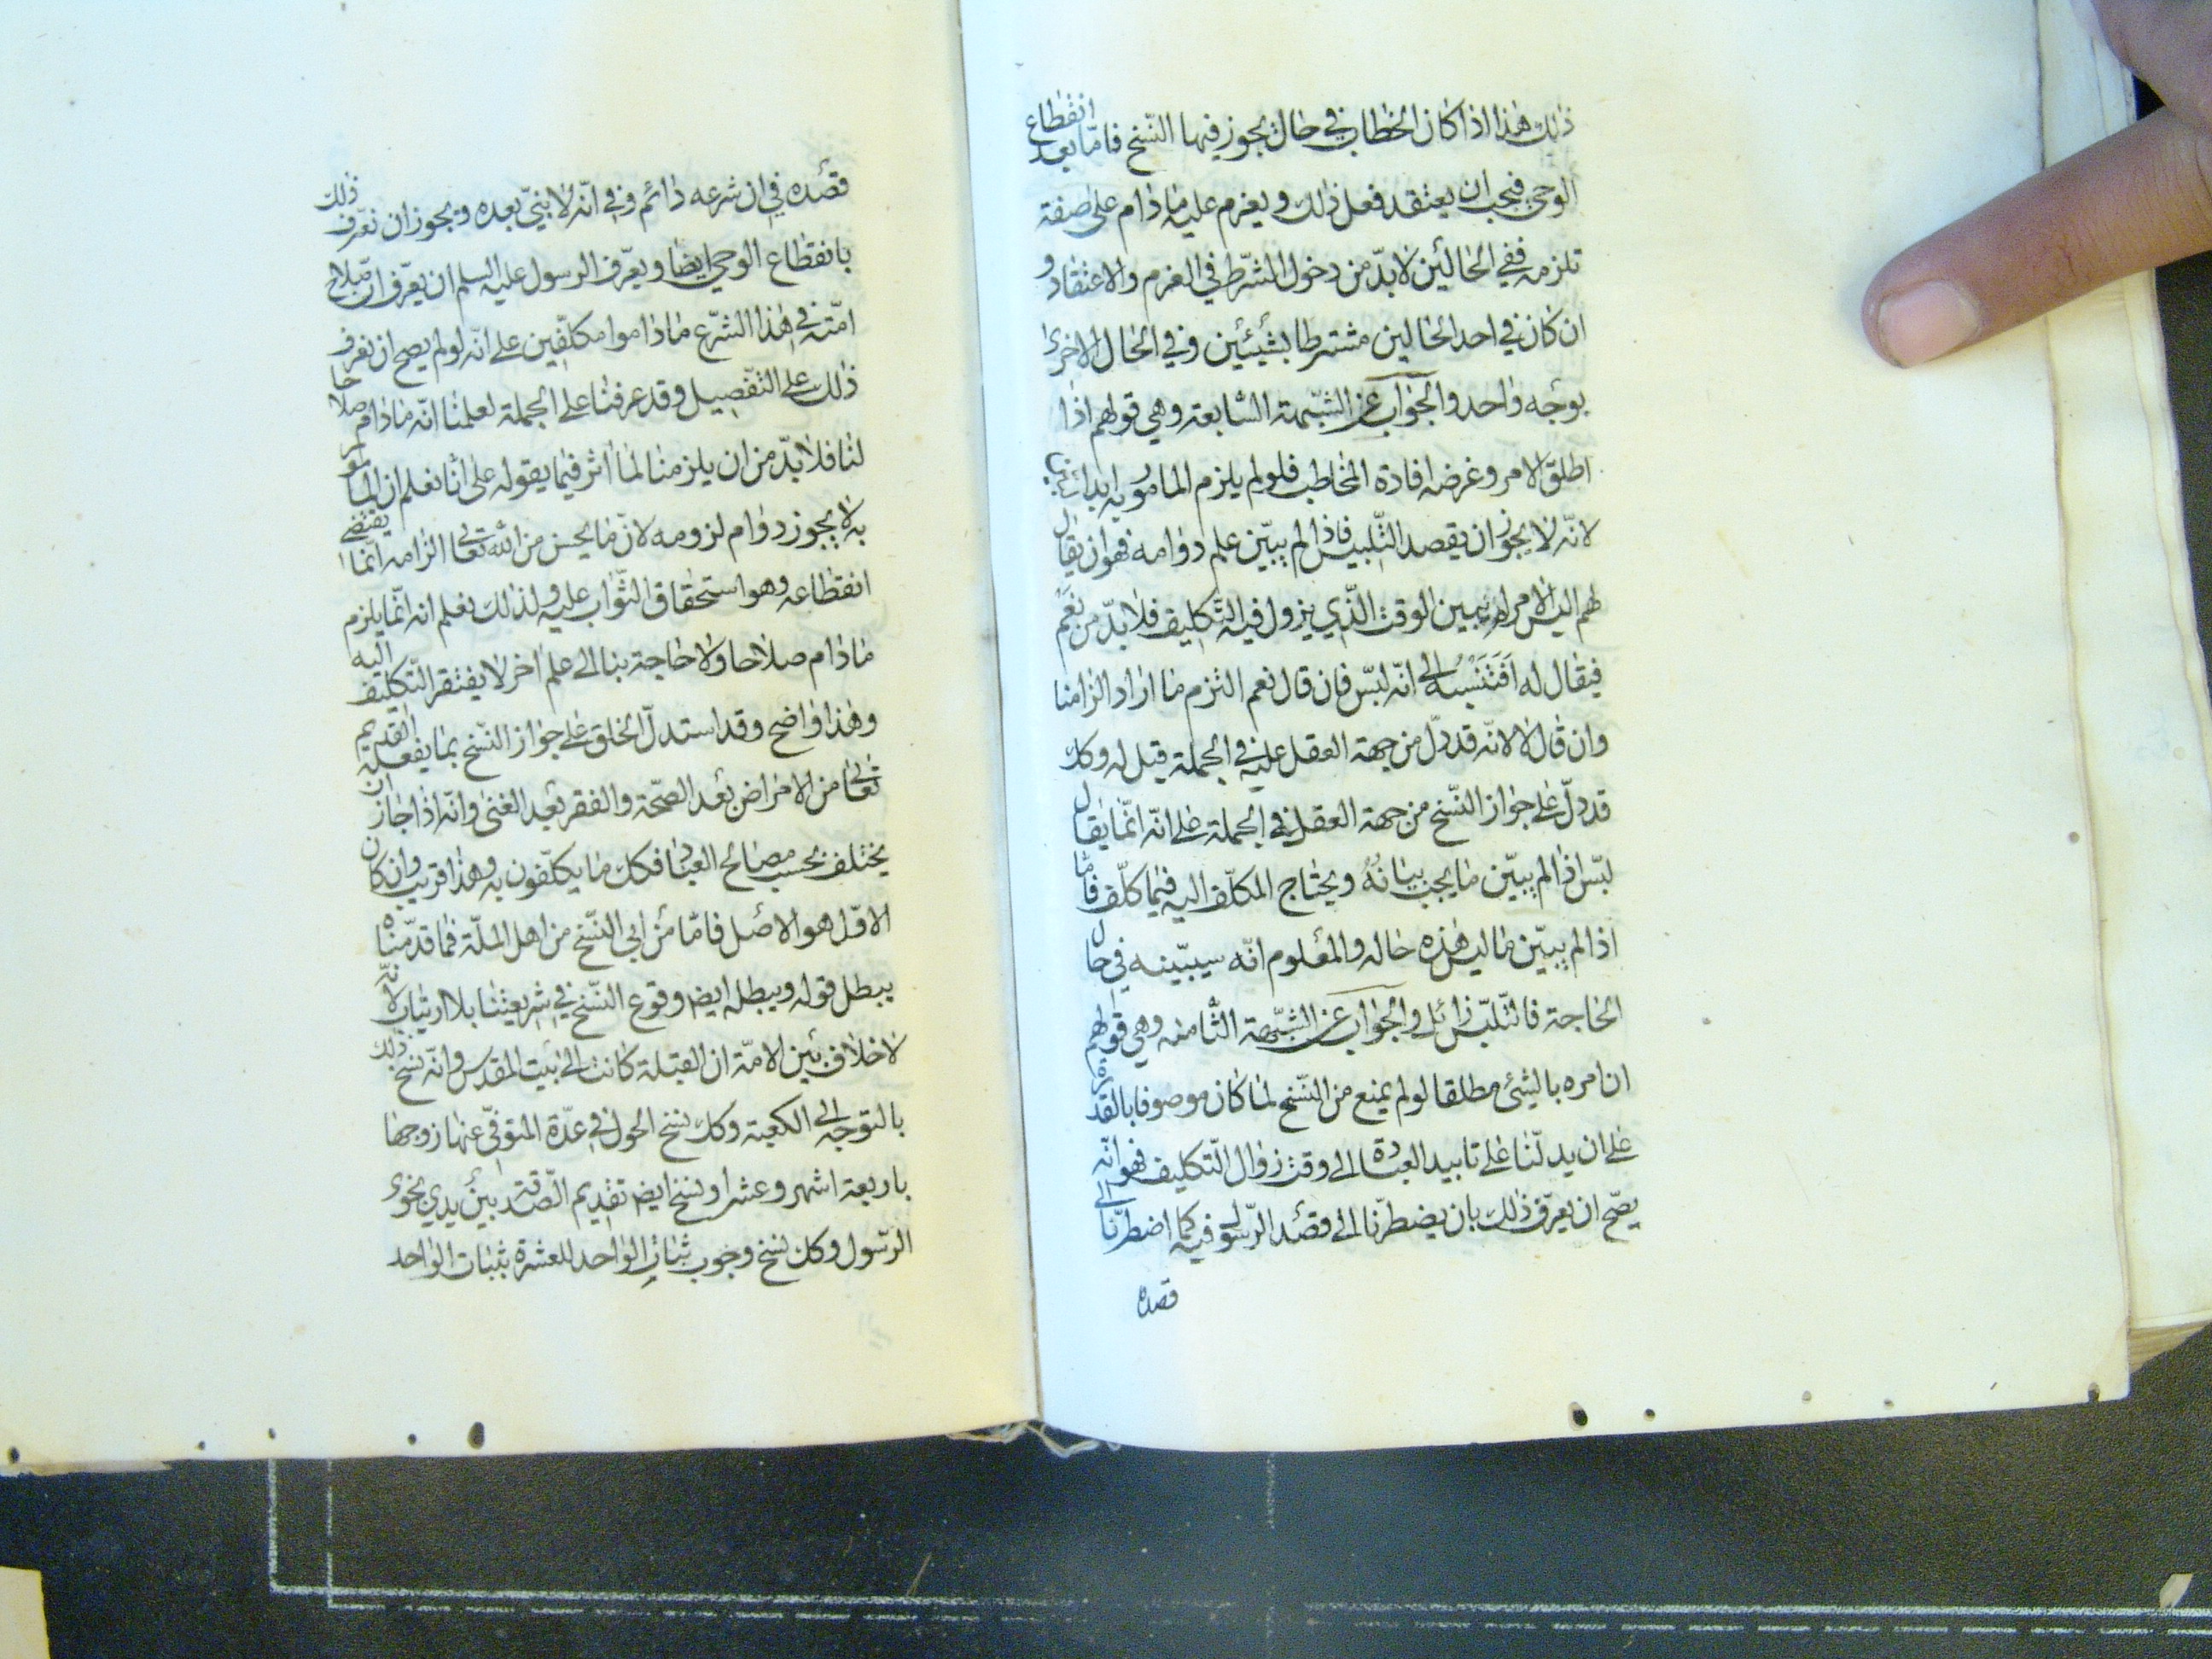 ذلك هذا اذا كان الخطاب في حال يجوز فيها النسخ فامّا بعد انقطاع
الوحي فيجب ان يعتقد فعل ذلك ويعزم عليه ما دام على صفة
تلزمه ففي الحالين لا بدّ من دخول الشرط في العزم والاعتقاد و
ان كان في احد الحالين مشترطا بشيئين وفي الحال الاخرى
بوجه واحد والجواب عن الشبهة السابعة وهي قولهم اذا
اطلق الامر وغرضه افادة المخاطب فلو لم يلزم المامور به ابدا
لانّه لا يجوز ان يقصد التلبيس فاذا لم يبيّن علم دوامه فهو ان يقال
لهم اليس الامر لم يبين الوقت الّذي يزول فيه التكليف فلا بدّ من نعم
فيقال له افتنسبه الى انّه لبّس فان قال نعم التزم ما اراد الزامنا
وان قال لا لانّه قد دلّ من جهة العقل عليه في الجملة قيل له وكذ
قد دلّ على جواز النّسخ من جهة العقل في الجملة على انّه انّما يقال
لبّس اذا لم يبيّن ما يجب بيانه ويحتاج المكلّف اليه فيما كلّف فامّا
اذا لم يبيّن ما ليس هذه حاله والمعلوم انّه سيبيّنه في حال
الحاجة فالتلبّس زائل والجواب عن الشبهة الثامنه وهي قولهم
ان امره بالشيئ مطلقا لو لم يمنع من النّسخ لما كان موصوفا بالقدرة
على ان يدلّنا على تابيد العبادة الى وقت زوال التكليف فهو انّه
يصّح ان يعرّف ذلك بان يضطرّنا الى قصد الرّسول فيه كما اضطرّنا الى
قصده
قصده في ان شرعه دائم وفي انّه لا نبيّ بعده ويجوز ان نعرّف ذلك
بانقطاع الوحي ايضا ويعرّف الرسول عليه السلم ان يعرّف ان صلاح
امّته في هذا الشّرع ما داموا مكلّفين على انّه لو لم يصح ان نعرف
ذلك على التفصيل وقد عرفنا على الجملة لعلمنا انّه ما دام صلاحا
لنا فلا بدّ من ان يلزمنا لما اثر فيما يقوله على انّا نعلم ان المامور
به لا يجوز دوام لزومه لانّ ما يحسن من الله تعالى الزامه انّما يقتضي
انقطاعه وهو استحقاق الثّواب عليه ولذلك نعلم انه انّما يلزم
ما دام صلاحا ولا حاجة بنا الى علم اخر لا يفتقر التّكليف اليه
وهذا واضح وقد استدلّ الخلق على جواز النّسخ بما يفعله القديم
تعالى من الامراض بعد الصّحة والفقر بعد الغنى وانّه اذا جاز ان
يختلف بحسب مصالح العباد فكذ ما يكلّفون به وهذا قريب وان كان
الاوّل هو الاصل فامّا من ابى النّسخ من اهل الملّة فما قدّمناه
يبطل قوله ويبطله ايض وقوع النّسخ في شريعتنا بلا ارتياب لانّه
لا خلاف بين الامّة ان القبلة كانت الى بيت المقدس وانّه نسخ ذلك
بالتوجّه الى الكعبة وكذ نسخ الحول في عدّة المتوفّى عنها زوجها
باربعة اشهر وعشرا ونسخ ايض تقديم الصّدقة بين يدي نجوى
الرّسول وكذ نسخ وجوب ثبات الواحد للعشرة بثبات الواحد